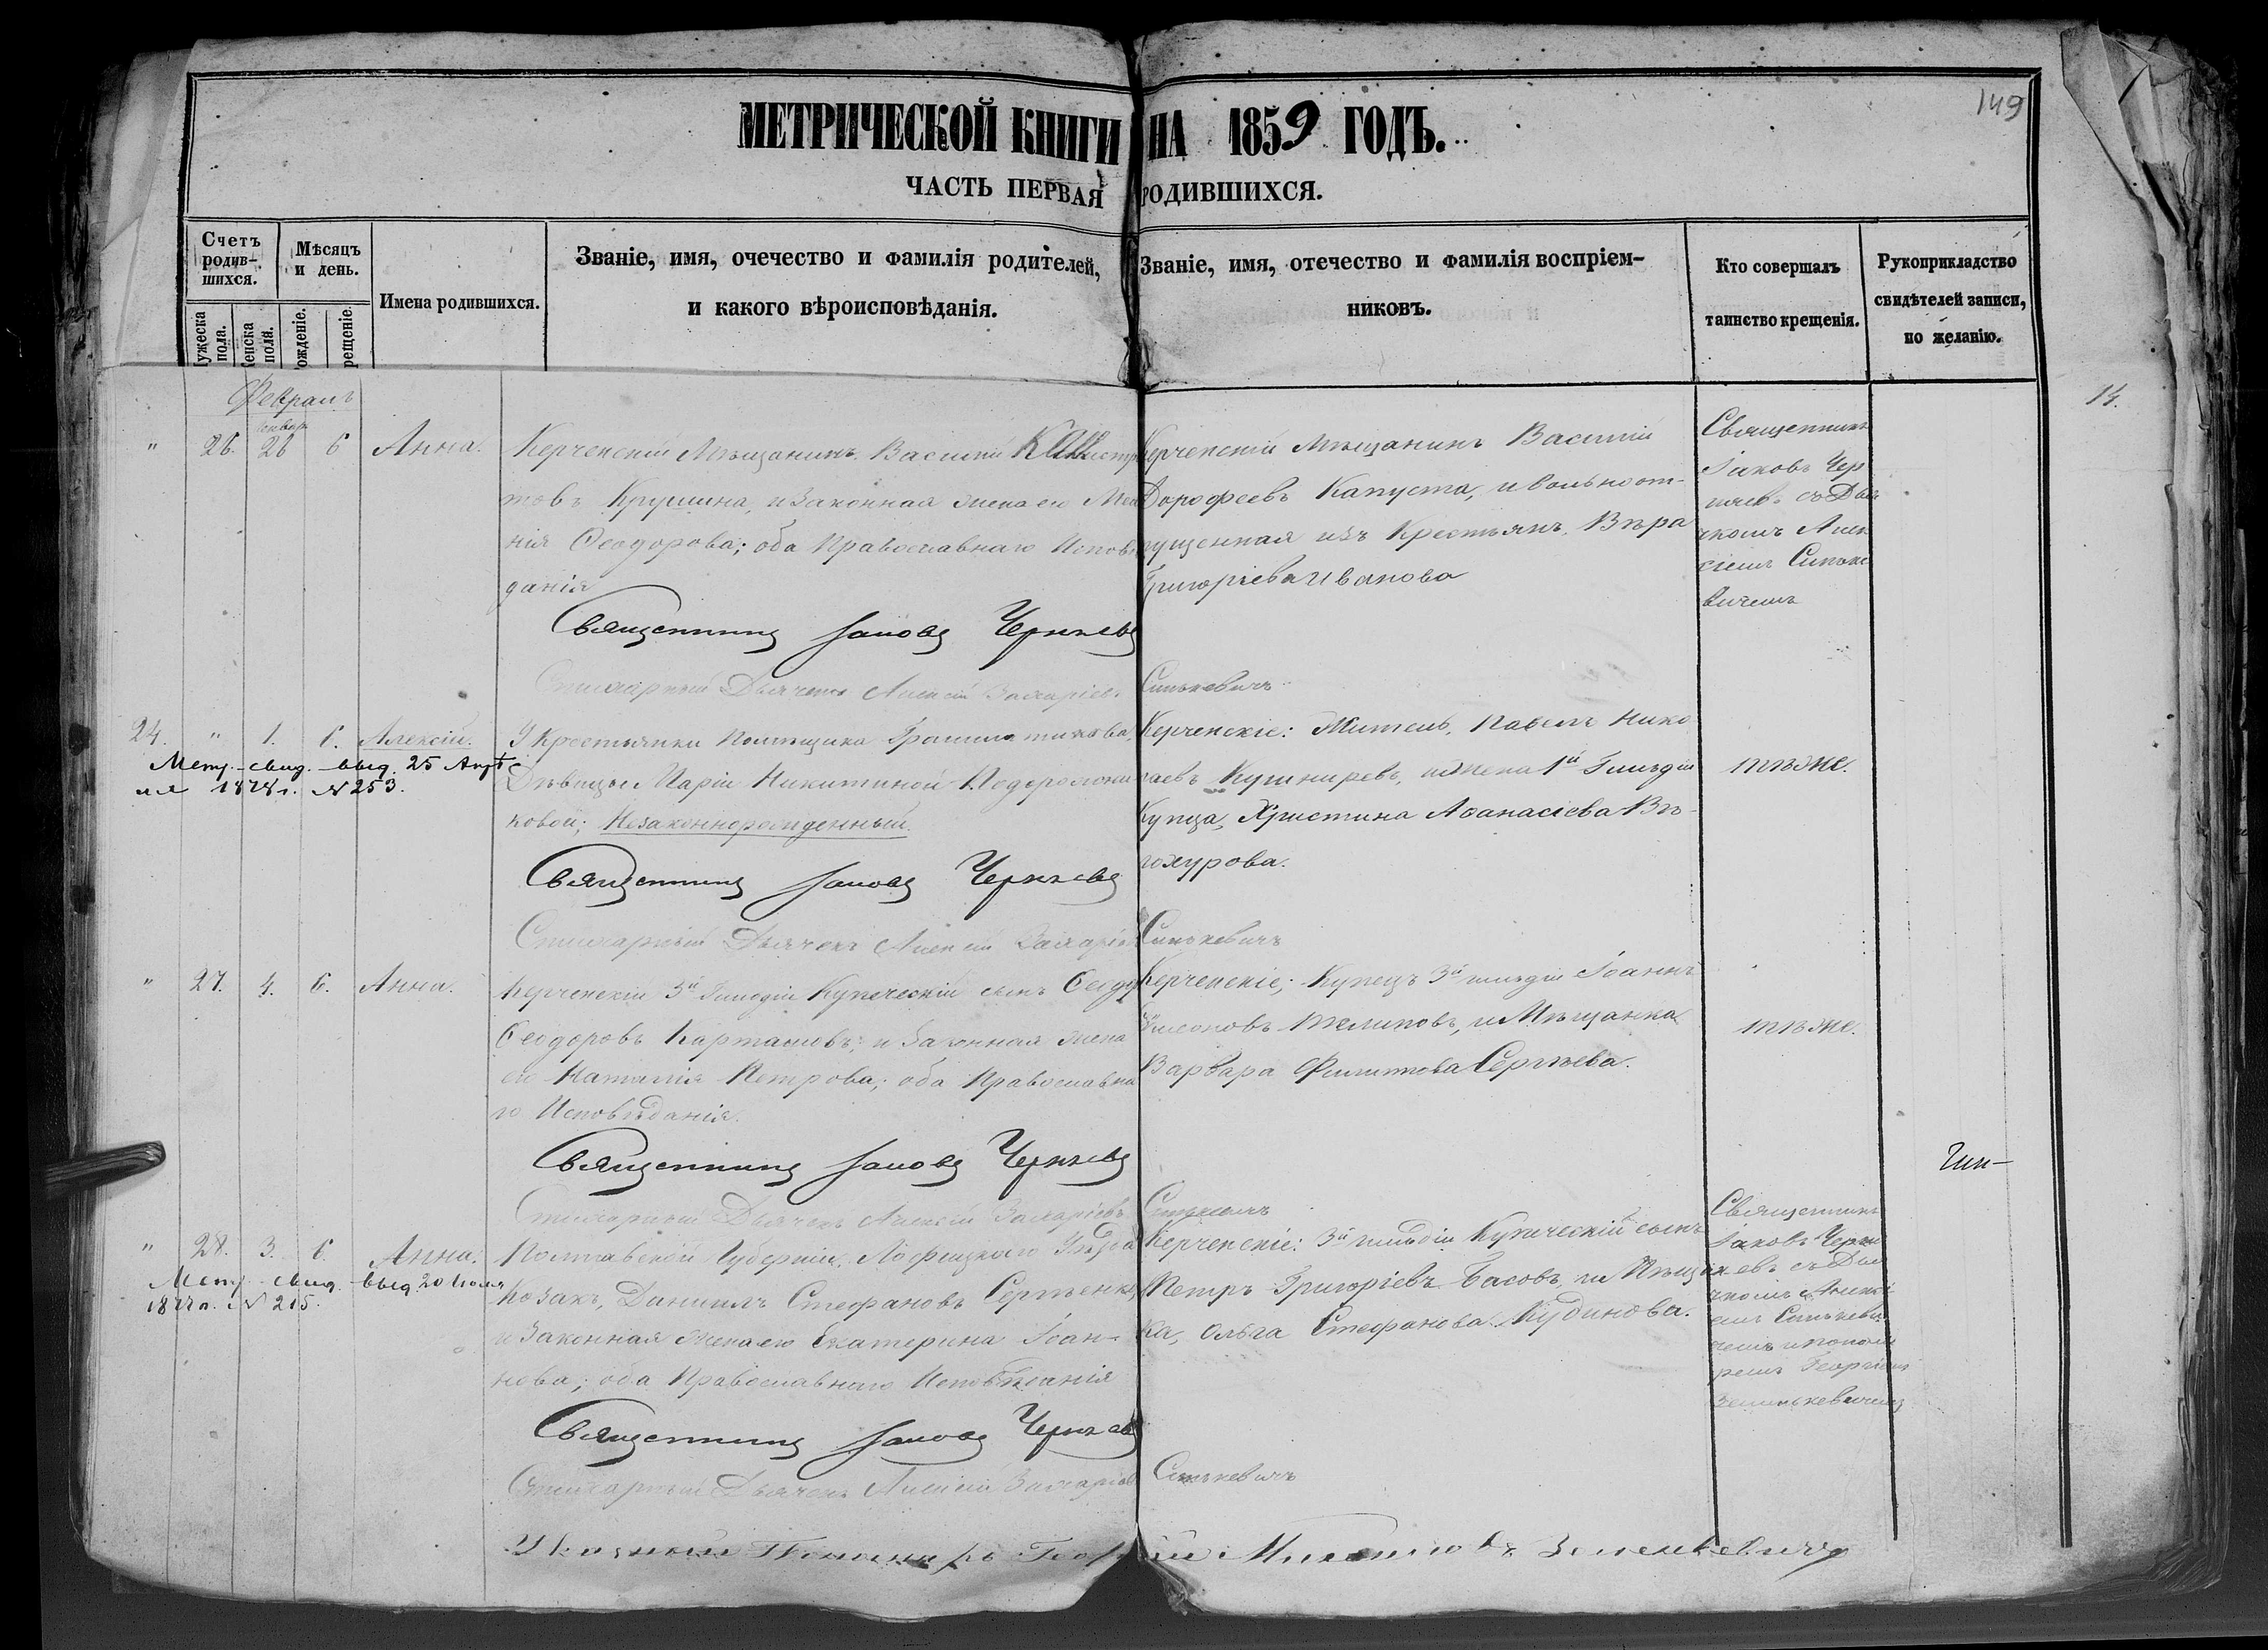 149
МЕТРИЧЕСКОЙ КНИГИ НА 1859 ГОДЪ.
ЧАСТЬ ПЕРВАЯ РОДИВШИХСЯ.
Счетъ родив-шихся.
Мѣсяцъ и день.
Имена родившихся.
Званіе, имя, очечество и фамилія родителей,
и какого вѣроисповѣданія.
Званіе, имя, отечество и фамилія воспріем-
никовъ.
Кто совершалъ
таинство крещенія.
Рукоприкладство
свидѣтелей записи,
по желанію.
ужеска пола.
енска пола.
ожденіе.
рещеніе.
14.
Февраль
" 26. 26 6 Анна.
Керченскій Мѣщанинъ Василій
товъ Крушина, и Законная жена его
нія Ѳеодорова; оба Православнаго Исповѣ
данія
Священникъ Іаковъ Черняевъ
Стихарный Дьячекъ Алексій Захаріевъ Синькевичъ
Керченскій Мѣщанинъ Василій
Дорофеевъ Капуста, и вольноот-
пущенная изъ Крестьянъ Вѣра
Григоріева Иванова
Священникъ
Іаковъ Чер
няевъ съ Дья
чкомъ Алек
сіемъ Синьке
вичемъ
24. " 1. 6. Алексій.
Метр. свид. выд. 25 Апрѣ
ля 1878 г. № 253.
У Крестьянки Помѣщика
Дѣвицы Маріи Никитиной
ковой; Незаконнорожденный.
Священникъ Іаковъ Черняевъ
Стихарный Дьячекъ Алексій Захаріевъ Синькевичъ
Керченскіе: Житель, Павелъ Нико
лаевъ Кушниревъ, и жена 1й Гильдіи
Купца, Христина Аѳанасіева Вѣ-
рохурова.
тѣ же.
" 27. 4. 6. Анна.
Керченскій 3й Гильдіи Купеческій сынъ
Ѳеодоровъ Карташовъ; и Законная жена
его Наталія Петрова; оба Православна
го Исповѣданія.
Священникъ Іаковъ Черняевъ
Стихарный Дьячекъ Алексій Захаріевъ Синькевичъ
Керченскіе; Купецъ 3й гильдіи Іоаннъ
и Мѣщанка
Варвара Филиппова Сергѣева.
тѣ же.
" 28. 3. 6. Анна.
Метр. свид. выд. 20 Іюля
№ 215.
Полтавской Губерніи, Лофицкаго Уѣзда
Козакъ, Даніилъ Стефановъ Сергѣенко,
и Законная Жена его Екатерина Іоан-
нова; оба Православнаго Исповѣданія
Священникъ Іаковъ Черняевъ
Стихарный Дьячекъ Алексій Захаріевъ Синькевичъ
Керченскіе: 3й гильдіи Купеческій сынъ
Петръ Григоріевъ Басовъ, и Мѣщан
ка, Ольга Стефанова Кудинова.
Священникъ
Іаковъ Черня
евъ съ Дья
чкомъ Алексі
емъ Синькеви
чемъ и понома
ремъ Георгіемъ
Зелинькевичемъ
Пономарь Георгій Зеленкевичъ